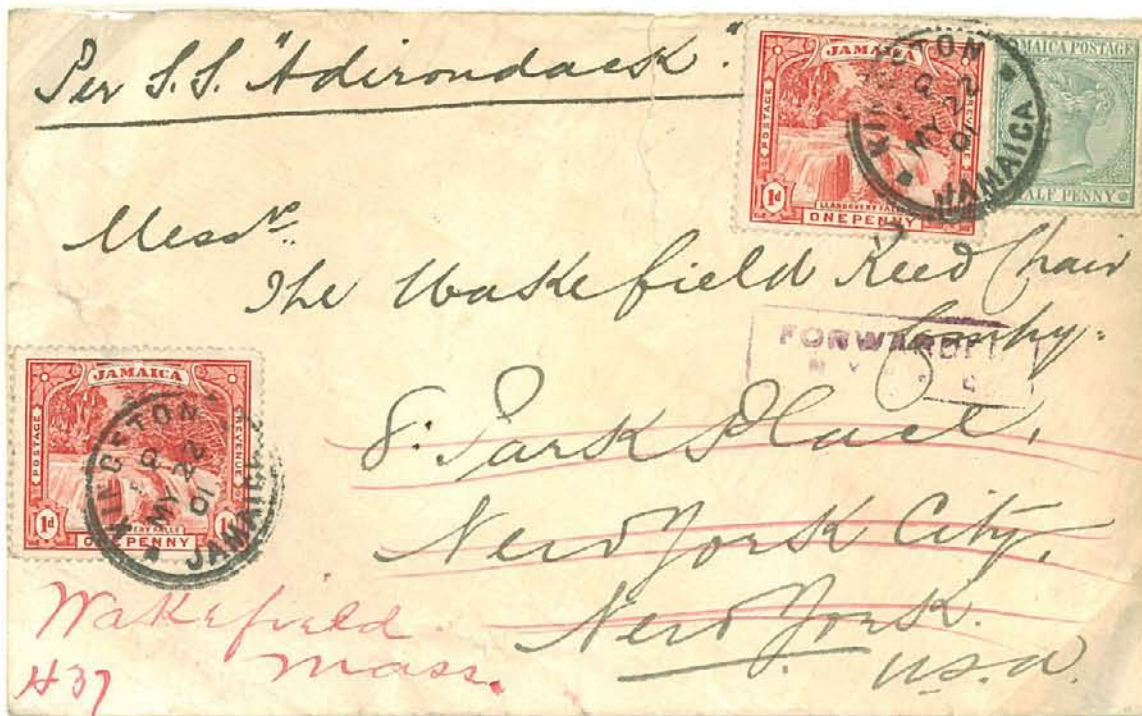 Per S.S. "Adirondack".
JAMAICA
POSTAGE
REVENUE
1d
LLANDOVERY FALLS
ONE PENNY
KINGSTON
MY 22
01
JAMAICA
JAMAICA POSTAGE
HALF PENNY
Messrs
The Wakefield Reed Chair
Company
FORWARDED
N Y
8. Park Place,
New York City,
New York.
U.S.A.
JAMAICA
POSTAGE
REVENUE
1d
ONE PENNY
KINGSTON
MY 22
01
JAMAICA
Wakefield
Mass.
H37